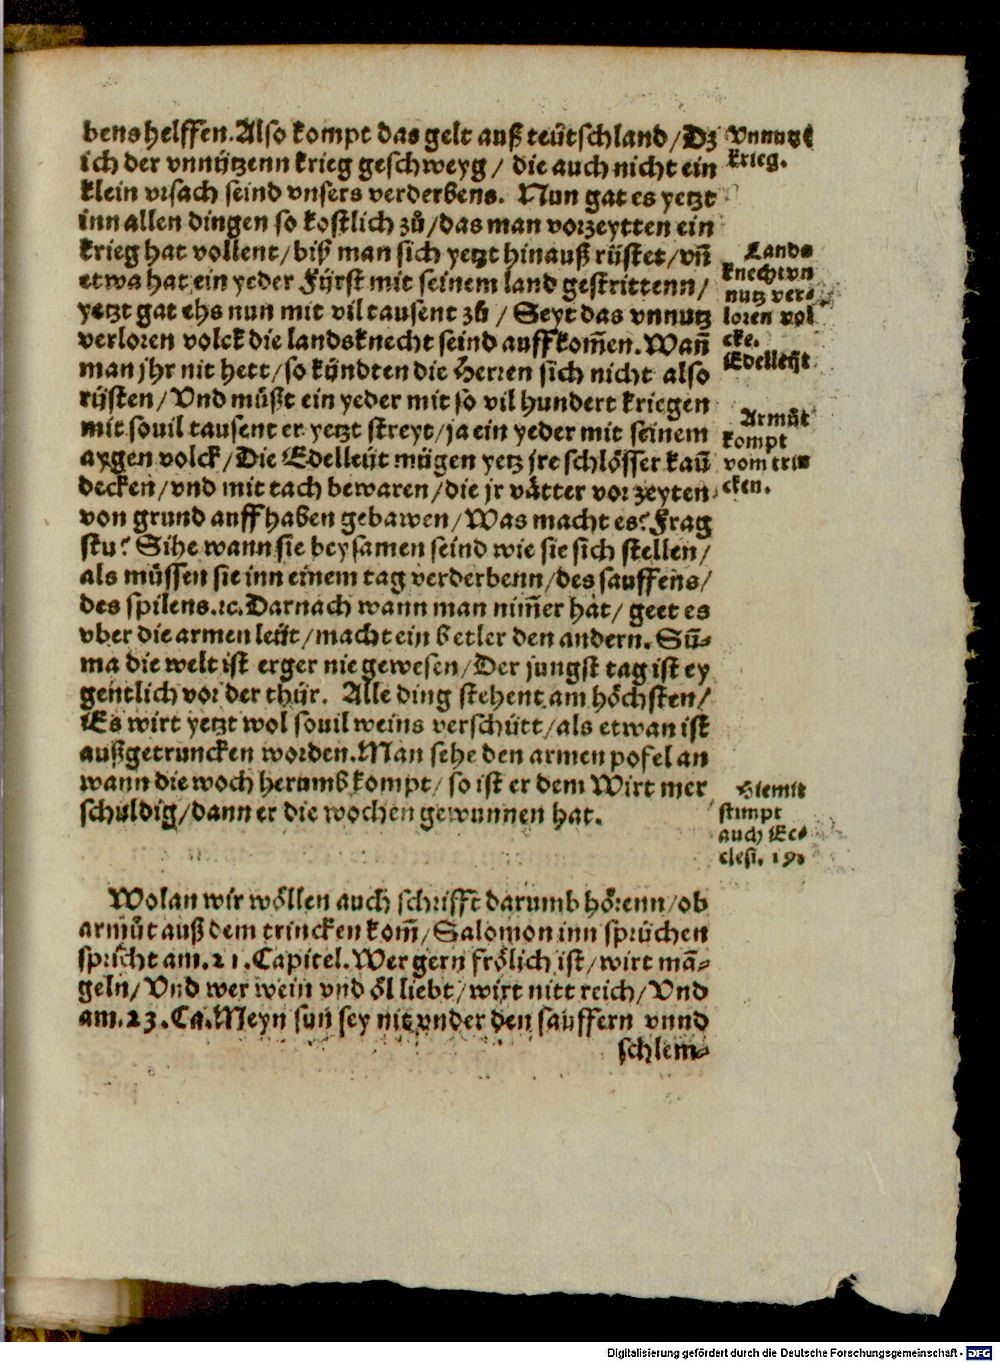 bens helffen. Also kompt das gelt auß teütschland / Dz
ich der vnnützenn krieg geschweyg / die auch nicht ein
klein vrsach seind vnsers verderbens. Nun gat es yetzt
inn allen dingen so kostlich zů / das man vorzeytten ein
krieg hat vollent / biß man sich yetzt hinauß rüstet / vñ
etwa hat ein yeder Fürst mit seinem land gestrittenn /
yetzt gat ehs nun mit vil tausent zů / Seyt das vnnutz
verloren volck die landsknecht seind auffkom̃en. Wañ
man jhr nit hett / so kündten die Herren sich nicht also
rüsten / Vnd můßt ein yeder mit so vil hundert kriegen
mit souil tausent er yetzt streyt / ja ein yeder mit seinem
aygen volck / Die Edelleüt mügen yetz jre schlösser kaũ
decken / vnd mit tach bewaren / die jr vätter vor zeyten
von grund auff haben gebawen / Was macht es? Frag
stu? Sihe wann sie bey samen seind wie sie sich stellen /
als müssen sie inn einem tag verderbenn / des sauffens /
des spilens. ꝛc. Darnach wann man nim̃er hat / geet es
vber die armen leüt / macht ein betler den andern. Sũ-
ma die welt ist erger nie gewesen / Der jungst tag ist ey
gentlich vor der thür. Alle ding stehent am höchsten /
Es wirt yetzt wol souil weins verschütt / als etwan ist
außgetruncken worden. Man sehe den armen pofel an
wann die woch herumb kompt / so ist er dem Wirt mer
schuldig / dann er die wochen gewunnen hat.
Wolan wir wöllen auch schrifft darumb hörenn / ob
armůt auß dem trincken kom̃ / Salomon inn sprüchen
spricht am. 21. Capitel. Wer gern frölich ist / wirt mã-
geln / Vnd wer wein vnd öl liebt / wirt nitt reich / Vnd
am. 23. Ca. Meyn sun sey nit vnder den sauffern vnnd
schlem-
Vnnutze
krieg.
Lands
knecht vn
nutz ver-
loren vol
cke.
Edelleüt
Armůt
kompt
vom trin
cken.
Hiemit
stimpt
auch Ec-
clesi. 19.
Digitalisierung gefördert durch die Deutsche Forschungsgemeinschaft - DFG